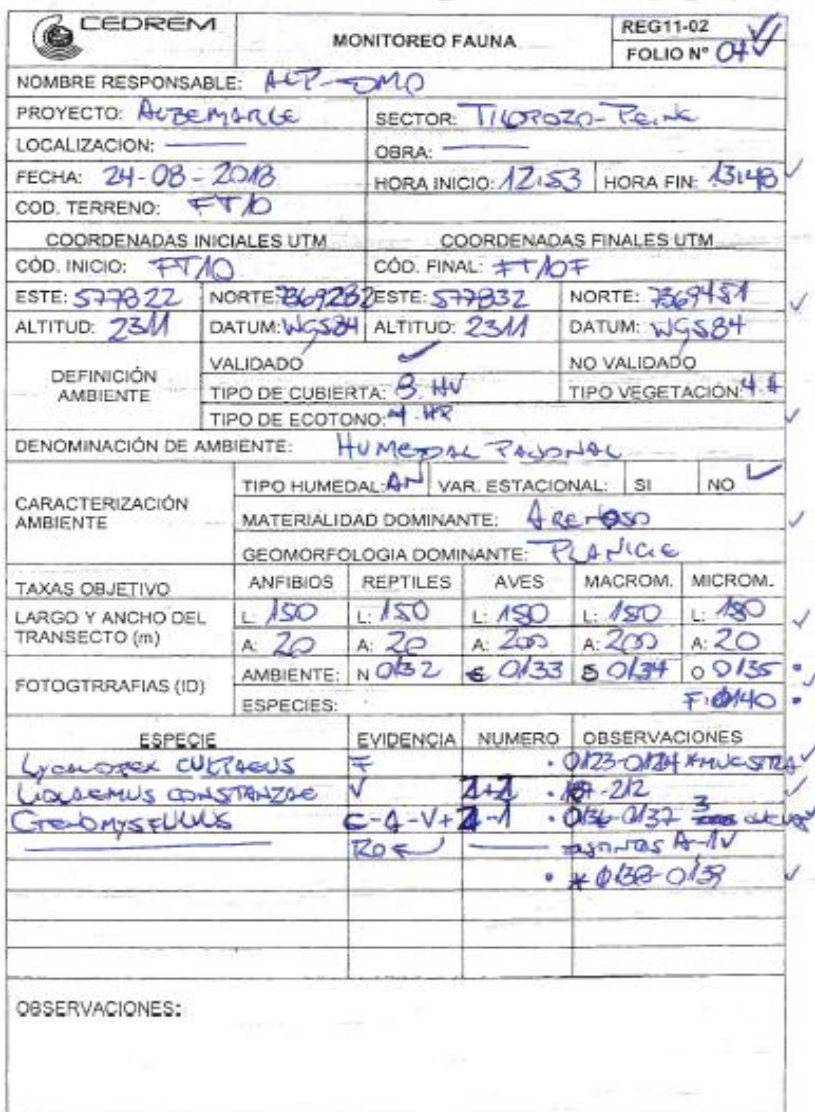 CEDREM
MONITOREO FAUNA
REG11-02
FOLIO N° 04
NOMBRE RESPONSABLE: ACP-DMO
PROYECTO: ALBEMARLE SECTOR: TILOPOZO-PEINE
LOCALIZACION: OBRA:
FECHA: 24-08-2018 HORA INICIO: 12:53 HORA FIN: 13:48
COD. TERRENO: FT10
COORDENADAS INICIALES UTM COORDENADAS FINALES UTM
CÓD. INICIO: FT10 CÓD. FINAL: FT10F
ESTE: 577822 NORTE: 7369282 ESTE: 577832 NORTE: 7369451
ALTITUD: 2311 DATUM: WGS84 ALTITUD: 2311 DATUM: WGS84
DEFINICIÓN AMBIENTE
VALIDADO ✓ NO VALIDADO
TIPO DE CUBIERTA: 8. HV TIPO VEGETACIÓN: 4. H
TIPO DE ECOTONO: 4. HP
DENOMINACIÓN DE AMBIENTE: HUMEDAL PAJONAL
CARACTERIZACIÓN AMBIENTE
TIPO HUMEDAL: AN VAR. ESTACIONAL: SI NO ✓
MATERIALIDAD DOMINANTE: ARENOSO
GEOMORFOLOGIA DOMINANTE: PLANICIE
TAXAS OBJETIVO ANFIBIOS REPTILES AVES MACROM. MICROM.
LARGO Y ANCHO DEL TRANSECTO (m)
L: 150 L: 150 L: 150 L: 150 L: 150
A: 20 A: 20 A: 200 A: 200 A: 20
FOTOGTRRAFIAS (ID)
AMBIENTE: N 0132 E 0133 S 0134 O 0135
ESPECIES: F: 0140
ESPECIE EVIDENCIA NUMERO OBSERVACIONES
LYCALOPEX CULPAEUS F 0123-0124 *MUESTRA
LIOLAEMUS CONSTANZAE V 1+1 -212
CTENOMYS FULVUS C-A-V+ -1 0136-0137 3
A-1V
* 0138-0139
OBSERVACIONES: